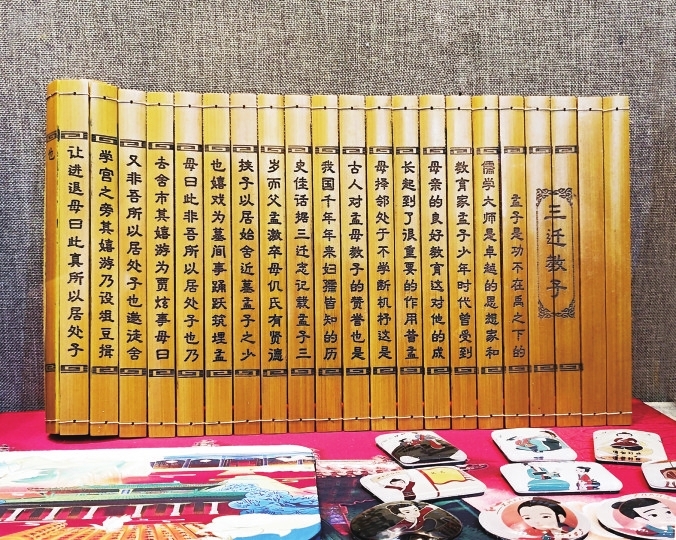 三迁教子
孟子是功不在禹之下的
儒学大师是卓越的思想家和
教育家孟子少年时代曾受到
母亲的良好教育这对他的成
长起到了很重要的作用昔孟
母择邻处子不学断机杼这是
古人对孟母教子的赞誉也是
我国千年年来妇孺皆知的历
史佳话据三迁志记载孟子三
岁而父孟激卒母仉氏有贤德
挟子以居始舍近墓孟子之少
也嬉戏为墓间事踊跃筑埋孟
母曰此非吾所以居处子也乃
去舍市其嬉游为贾炫事母曰
又非吾所以居处子也邀徒舍
学宫之旁其嬉游乃设俎豆揖
让进退母曰此真所以居处子
也